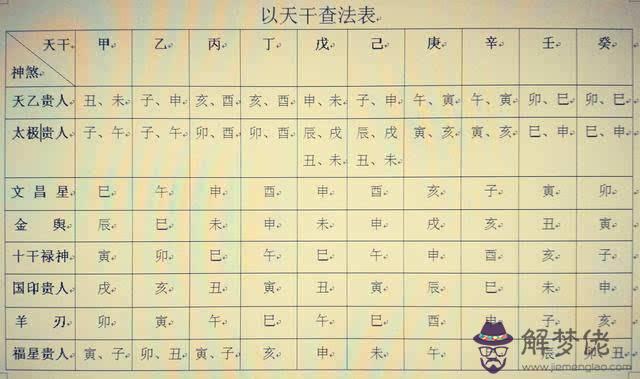 以天干查法表
天干 甲 乙 丙 丁 戊 己 庚 辛 壬 癸
神煞
天乙贵人 丑、未 子、申 亥、酉 亥、酉 申、未 子、申 午、寅 午、寅 卯、巳 卯、巳
太极贵人 子、午 子、午 卯、酉 卯、酉 辰、戌 辰、戌 寅、亥 寅、亥 巳、申 巳、申
丑、未 丑、未
文昌星 巳 午 申 酉 申 酉 亥 子 寅 卯
金舆 辰 巳 未 申 未 申 戌 亥 丑 寅
十干禄神 寅 卯 巳 午 巳 午 申 酉 亥 子
国印贵人 戌 亥 丑 寅 丑 寅 辰 巳 未 申
羊刃 卯 寅 午 巳 午 巳 酉 申 子 亥
福星贵人 寅、子 卯、丑 寅、子 亥 申 未 午 辰 丑
解梦佬
www.jiemenglao.com